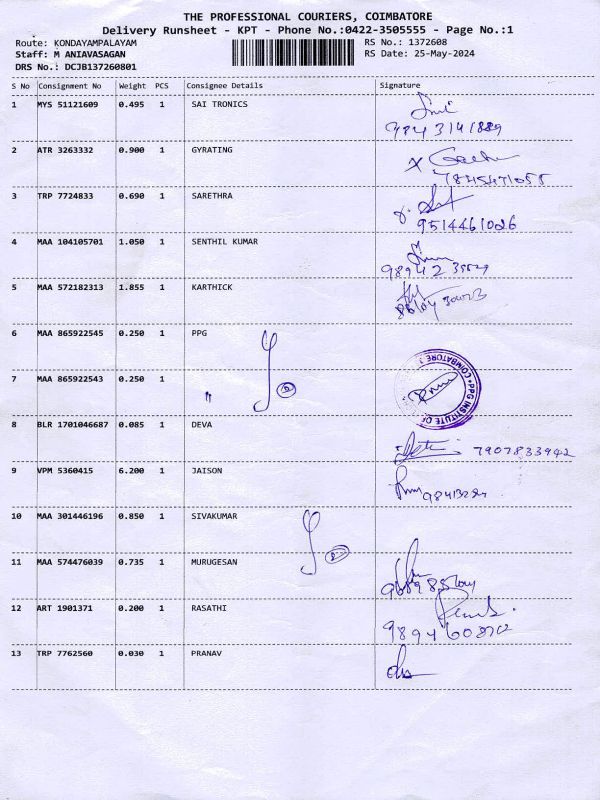 THE PROFESSIONAL COURIERS, COIMBATORE
Delivery Runsheet - KPT - Phone No.:0422-3505555 - Page No.:1
Route: KONDAYAMPALAYAM RS No.: 1372608
Staff: M ANIAVASAGAN RS Date: 25-May-2024
DRS No.: DCJB137260801
S No Consignment No Weight PCS Consignee Details Signature
1 MYS 51121609 0.495 1 SAI TRONICS
9843141889
2 ATR 3263332 0.900 1 GYRATING
7845471055
3 TRP 7724833 0.690 1 SARETHRA
9514461026
4 MAA 104105701 1.050 1 SENTHIL KUMAR
5 MAA 572182313 1.855 1 KARTHICK
6 MAA 865922545 0.250 1 PPG
7 MAA 865922543 0.250 1 "
PPG INSTITUTE OF COIMBATORE
8 BLR 1701046687 0.085 1 DEVA
7907833942
9 VPM 5360415 6.200 1 JAISON
10 MAA 301446196 0.850 1 SIVAKUMAR
11 MAA 574476039 0.735 1 MURUGESAN
12 ART 1901371 0.200 1 RASATHI
13 TRP 7762560 0.030 1 PRANAV